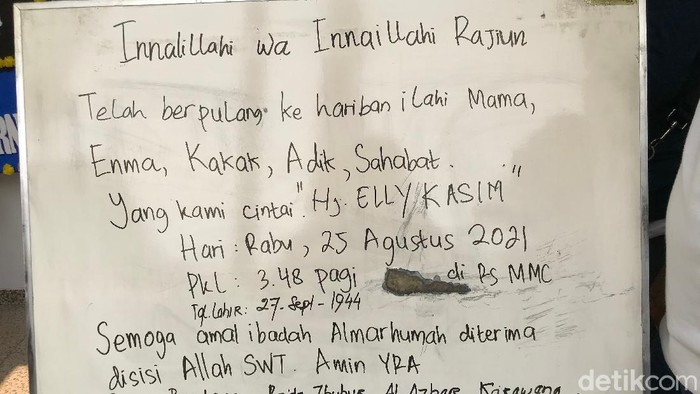 Innalillahi wa Innaillahi Rajiun
Telah berpulang ke hariban ilahi Mama,
Enma, Kakak, Adik, Sahabat.
Yang kami cintai "Hj. ELLY KASIM"
Hari : Rabu, 25 Agustus 2021
Pkl : 3.48 pagi di Rs MMC
Tgl Lahir : 27-Sept-1944
Semoga amal ibadah Almarhumah diterima
disisi Allah SWT. Amin YRA
Al Azhar
detikcom